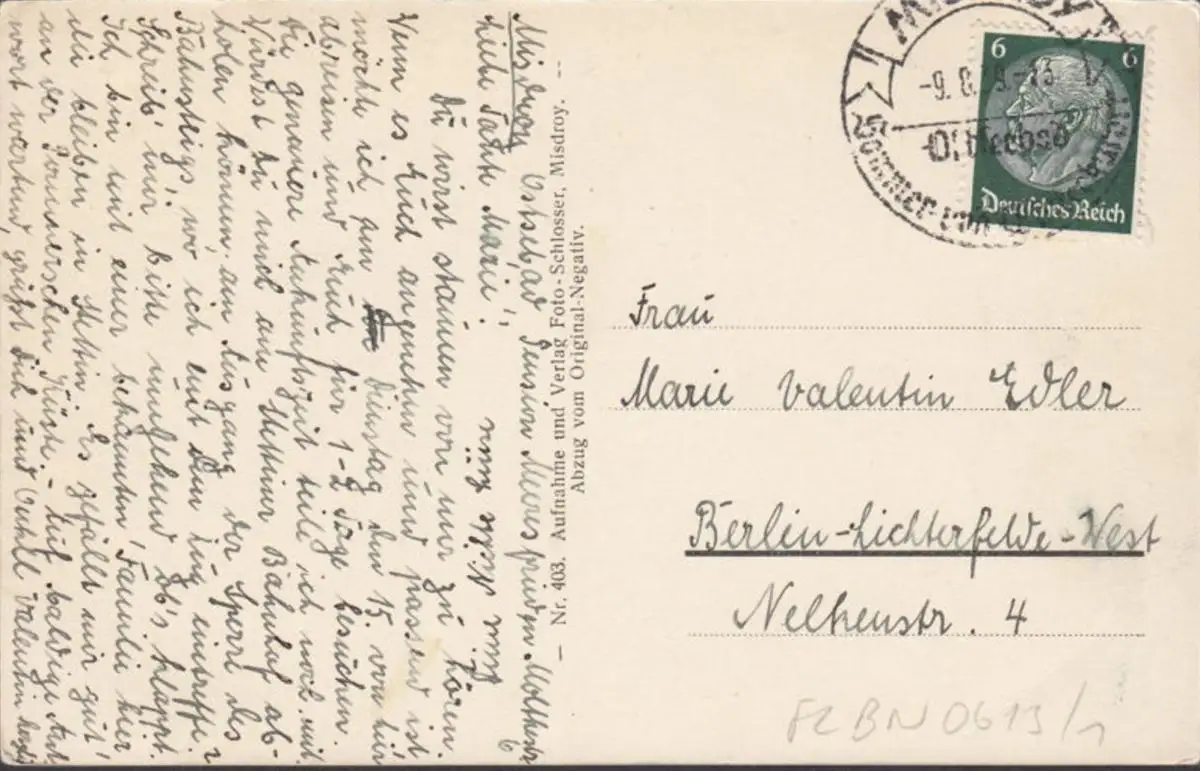 Misdroy Ostseebad Pension Meeresfrieden Moltkestr
6
Liebe Tante Marie!
Du wirst staunen von mir zu hören.
Wenn es Euch angenehm und passend ist,
möchte ich am Dienstag den 15. von hier
abreisen und Euch für 1-2 Tage besuchen.
Die genauere Ankunftszeit teile ich noch mit.
Würdest Du mich am Stettiner Bahnhof ab-
holen können, am Ausgang der Sperre des
Bahnsteigs, wo ich mit dem Zug eintreffe?
Schreib' mir bitte umgehend ob's klappt.
Ich bin mit einer bekannten Familie hier
die bleiben in Stettin. Es gefällt mir gut
an der Pommerschen Küste. Auf baldige Ant-
wort wartend, grüßt Dich und Onkel Valentin herzl.
Eure Nichte
- Nr. 403. Aufnahme und Verlag Foto-Schlosser, Misdroy. --
Abzug vom Original-Negativ.
MISDROY
-9.8.39.-13
Ostseebad
Sommer- und
6 6
Deutsches Reich
Frau
Marie Valentin Edler
Berlin-Lichterfelde-West
Nelkenstr. 4
FZBN0613/1